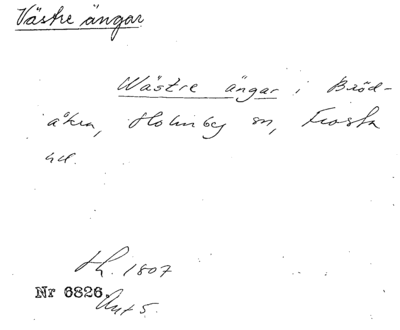 Västre ängar
Wästre ängar i Bröd-
åkra, Holmby sn, Frosta
hd.
1807
Nr 6826